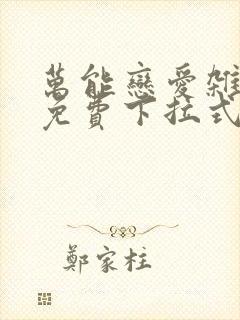 萬能戀愛雜
免費下拉式
鄭家柱